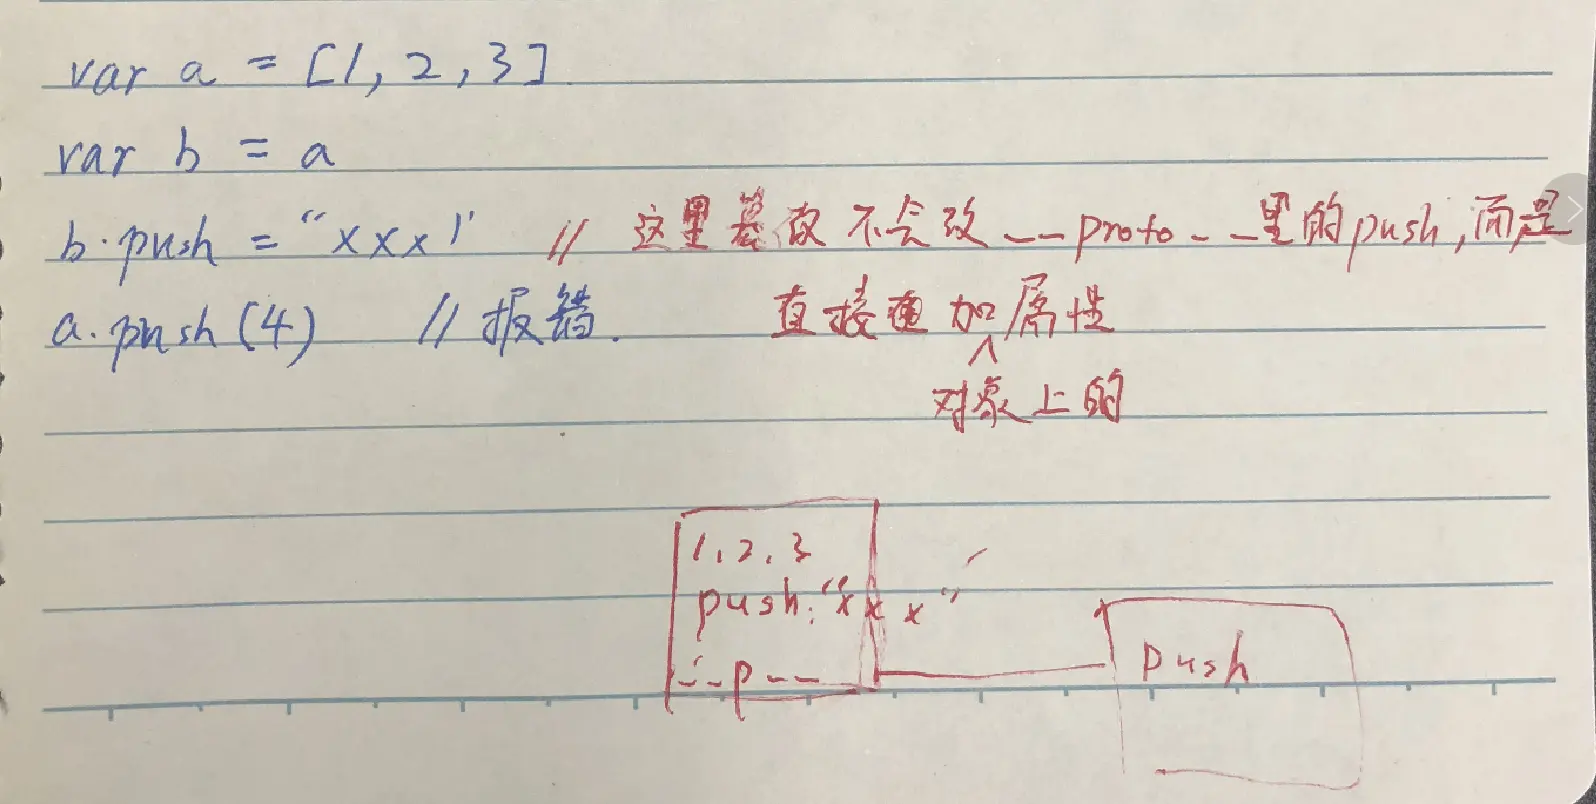 var a = [1, 2, 3]
var b = a
b.push = "xxx" // 这里 不会改 __proto__里的push,而是
a.push(4) // 报错. 直接 加属性
^
对象上的
1, 2, 3
push:"xxx"
__p__
push